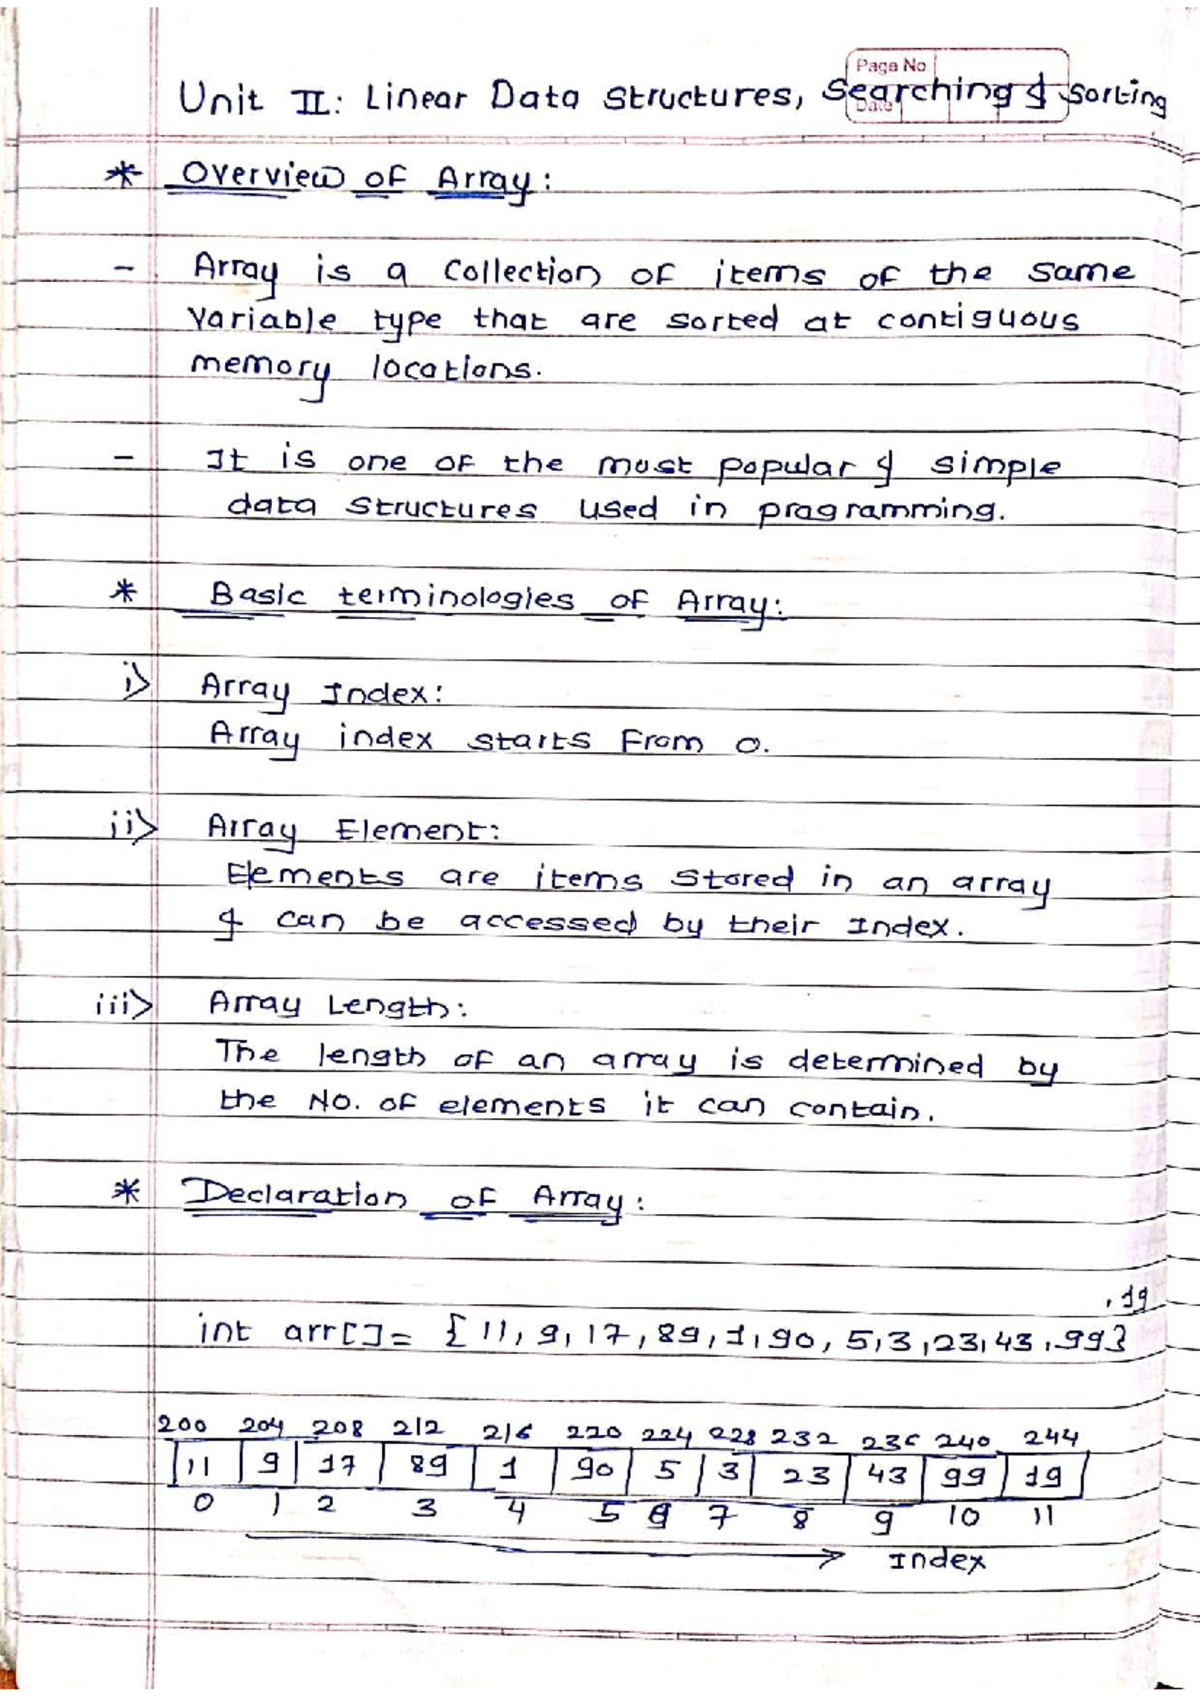 Page No
Date
Unit II: Linear Data Structures, Searching & Sorting
* Overview of Array:
- Array is a collection of items of the same
Variable type that are sorted at contiguous
memory locations.
- It is one of the most popular & simple
data structures used in programming.
* Basic terminologies of Array:
i> Array Index:
Array index starts from 0.
ii> Array Element:
Elements are items stored in an array
& can be accessed by their Index.
iii> Array Length:
The length of an array is determined by
the No. of elements it can contain.
* Declaration of Array:
, 19
int arr[]= {11, 9, 17, 89, 1, 90, 5, 3, 23, 43, 99}
200 204 208 212 216 220 224 228 232 236 240 244
11 9 17 89 1 90 5 3 23 43 99 19
0 1 2 3 4 5 6 7 8 9 10 11
→ Index